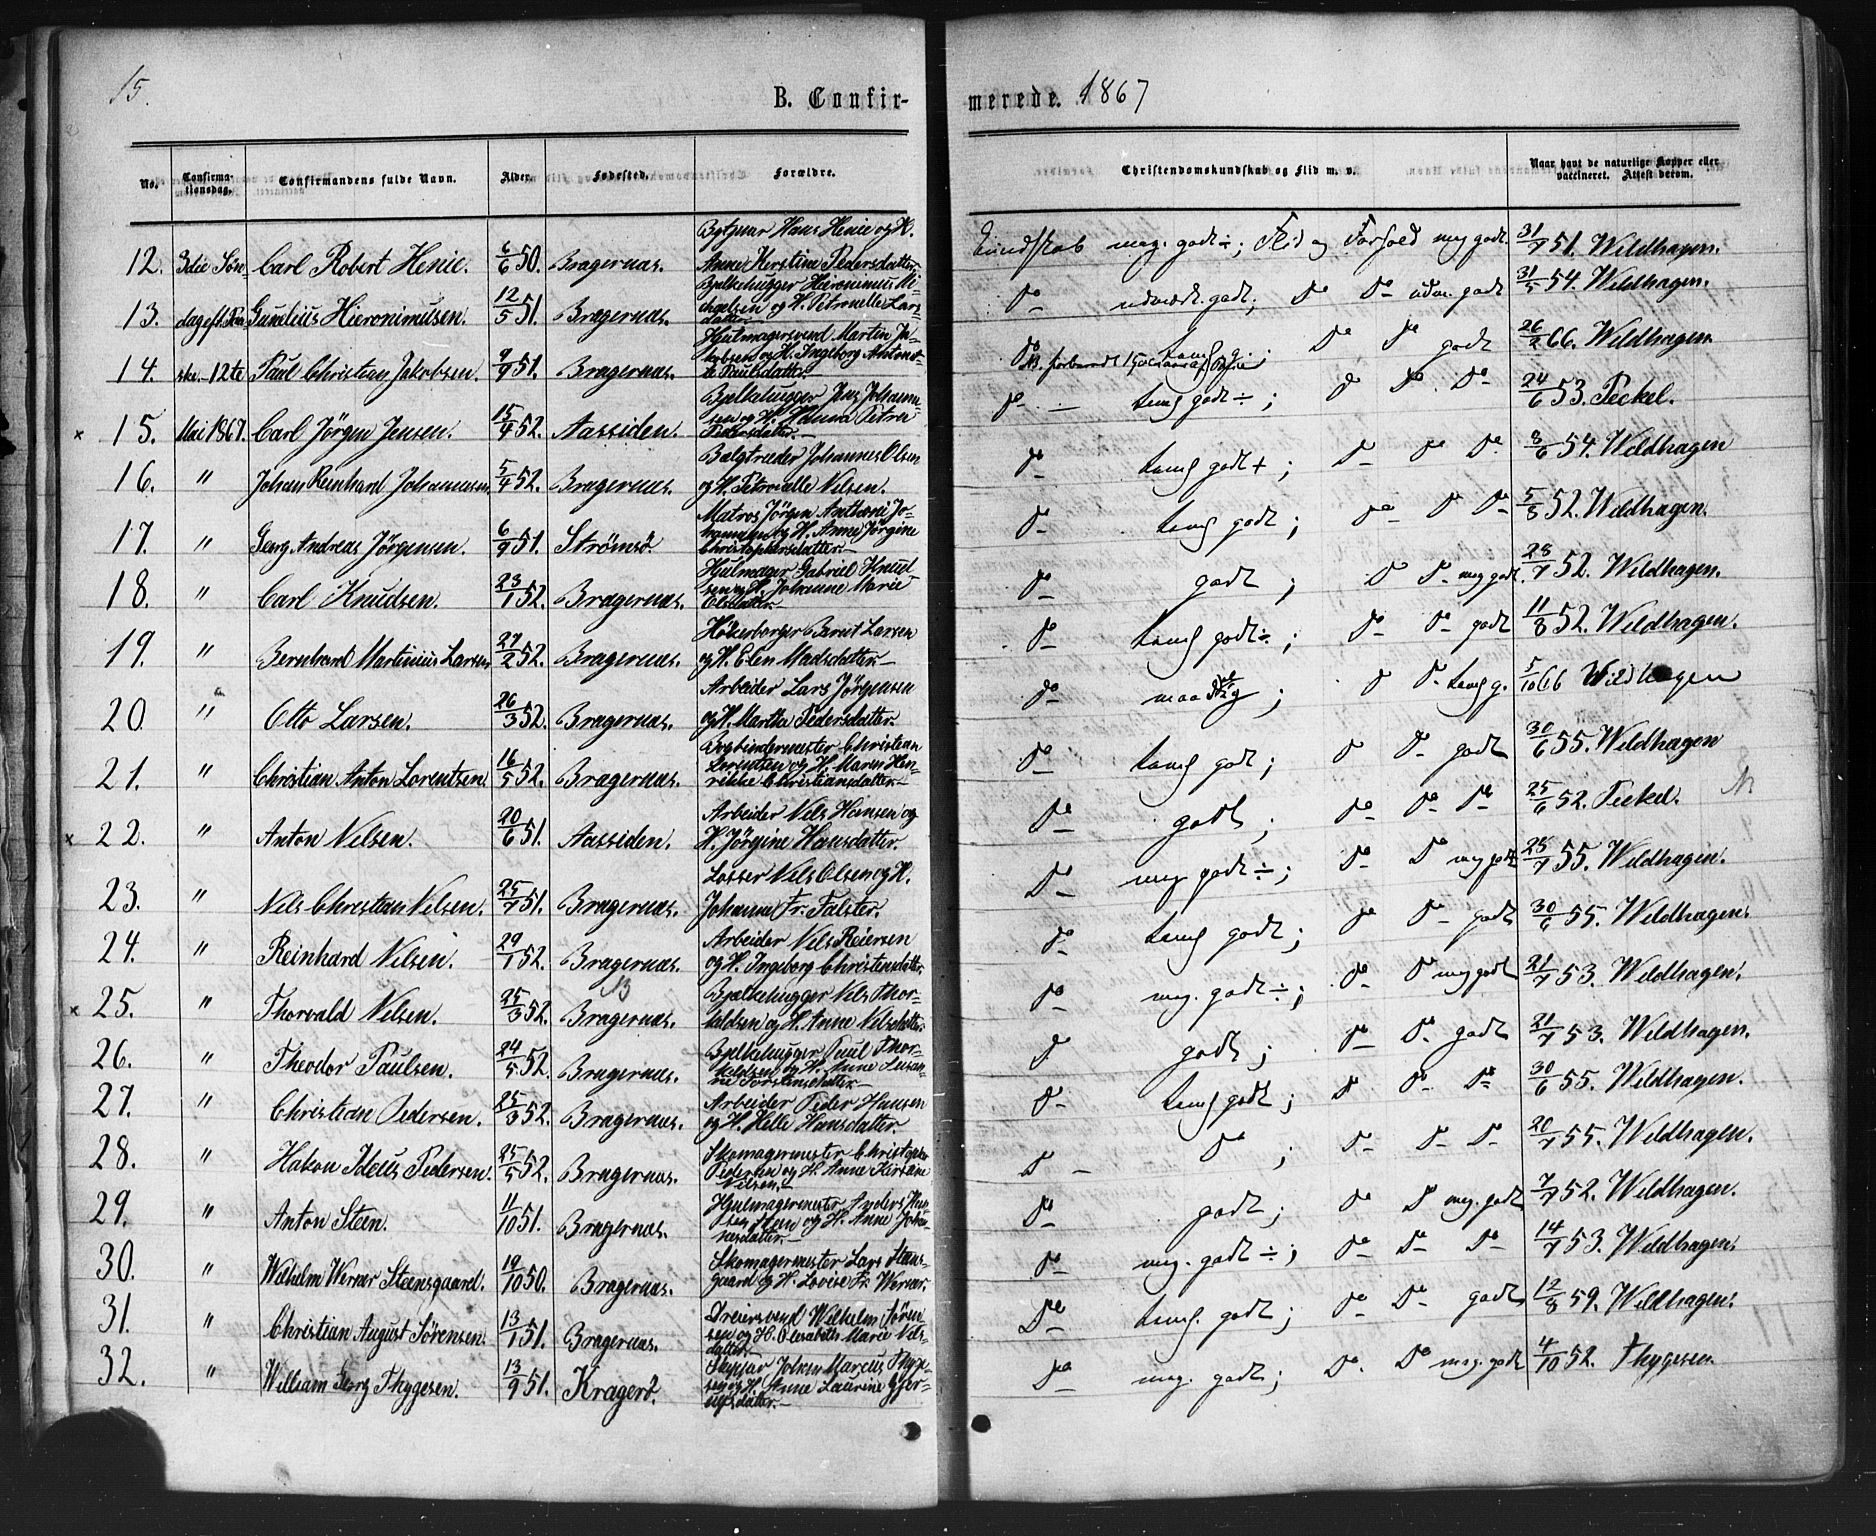 15.
B. Confir-
merede. 1867
No. Confirma-tionsdag. Confirmandens fulde Navn. Alder. Fødested. Forældre. Christendomskundskab og Flid m. v. Naar havt de naturlige Kopper eller vaccineret. Attest derom.
12. 3die Søn- Carl Robert Henie. 6/6 50. Bragernæs. Hans Henie og H. Anne Kerstine Pedersdatter. Kundskab meg. godt ÷; Flid og Forhold meg godt. 31/7 51. Wildhagen.
13. dag eft. Paa- Gunelius Hieronimusen. 12/5 51. Bragernæs. Bjelkehugger Hieronimus Mi-chelsen og H. Petronelle Lars-datter.- Do udmærk. godt; Do Do udm. godt 31/5 54. Wildhagen.
14. ske - 12te Paul Christian Jakobsen. 9/9 51. Bragernæs. Hjulmagersvend Martin Ja-kobsen og H. Ingeborg Paulsdatter.- Do temg g.; Do Do godt 26/2 66. Wildhagen.
× 15. Mai 1867. Carl Jörgen Jensen. 15/4 52. Aassiden. Bjelkehugger Jens Johann-sen og H. Hanna Petra Pedersdatter.- Do temg godt ÷; Do Do Do 24/6 53. Peckel.
16. " Johan Reinhard Johannesen. 5/4 52. Bragernæs. Bælgtræder Johannes Olsen og H. Petronelle Nilsen. Do temg godt +; Do Do Do 8/6 54. Wildhagen
17. " Georg Andreas Jörgensen. 6/9 51. Strömsö. Matros Jörgen Anthoni Jo-hannesen og H. Anne Jörgine Christophersdatter.- Do temg godt; Do Do Do 5/8 52. Wildhagen.
18. " Carl Knudsen. 23/1 52. Bragernæs. Hjulmager Gabriel Knud-sen og H. Johanne Marie Olsdatter. Do godt; Do Do meg godt. 28/7 52. Wildhagen.
19. " Bernhard Martinius Larsen. 27/2 52. Bragernæs. Hökerborger Berent Larsen og H. Elen Madsdatter.- Do temg godt ÷; Do Do godt 11/8 52. Wildhagen.
20. " Otto Larsen. 26/3 52. Bragernæs. Arbeider Lars Jörgensen og H. Martha Pedersdatter. Do maadelig; Do Do temg g. 5/10 66 Wildhagen
21. " Christian Anton Lorentsen. 16/5 52. Bragernæs. Bogbindermester Christian Lorentsen og H. Maren Hen-rikke Christiansdatter.- Do temg godt; Do Do godt 30/6 55. Wildhagen
× 22. " Anton Nilsen. 20/6 51. Aassiden. Arbeider Nils Hansen og H. Jörgine Hansdatter. Do godt; Do Do Do 25/6 52. Peckel.
23. " Nils Christian Nilsen. 25/7 51. Bragernæs. Losser Nils Olsen og H. Johanne Fr. Falster. Do meg godt ÷; Do Do meg godt 28/7 55. Wildhagen.
24. " Reinhard Nilsen. 29/1 52. Bragernæs. Arbeider Nils Reiersen og H. Ingeborg Christensdatter. Do temg godt; Do Do godt 30/6 55. Wildhagen.
× 25. " Thorvald Nilsen. 25/3 52. Bragernæs. Bjelkehugger Nils Thor-valdsen og H. Anne Nilsdatter. Do meg. godt ÷; Do Do meg godt 21/7 53. Wildhagen.
26. " Theodor Paulsen. 24/5 52. Bragernæs. Bjelkehugger Paul Thor-valdsen og H. Anne Susan-ne Torstensdatter.- Do godt; Do Do godt 21/7 53. Wildhagen.
27. " Christian Pedersen. 25/3 52. Bragernæs. Arbeider Peder Hansen og H. Helle Hansdatter. Do temg godt; Do Do Do 30/6 55. Wildhagen.
28. " Hakon Pedersen. 25/5 52. Bragernæs. Skomagermester Christopher Pedersen og H. Anne Kirstine Nilsen. Do Do; Do Do Do 20/7 55. Wildhagen.
29. " Anton Steen. 11/10 51. Bragernæs. Hjulmagermester Anders Han-sen Steen og H. Anne Johan-nesdatter.- Do godt; Do Do meg. godt 7/7 52. Wildhagen.
30. " Wilhelm Werner Steensgaard. 19/10 50. Bragernæs. Skomagermester Lars Steens-gaard og H. Lovise Fr. Werner. Do meg. godt ÷; Do Do Do 14/7 53. Wildhagen.
31. " Christian August Sörensen. 13/1 51. Bragernæs. Dreiersvend Wilhelm Sören-sen og H. Elisabeth Marie Nils-datter. Do temg. godt; Do Do godt 12/8 59. Wildhagen.
32. " William Georg Thygesen. 13/9 51. Kragerö. Skipper Johan Marcus Thyge-sen og H. Anne Laurine Gjer-ulfsdatter.- Do meg. godt; Do. Do meg. godt 4/10 52. Thygesen.